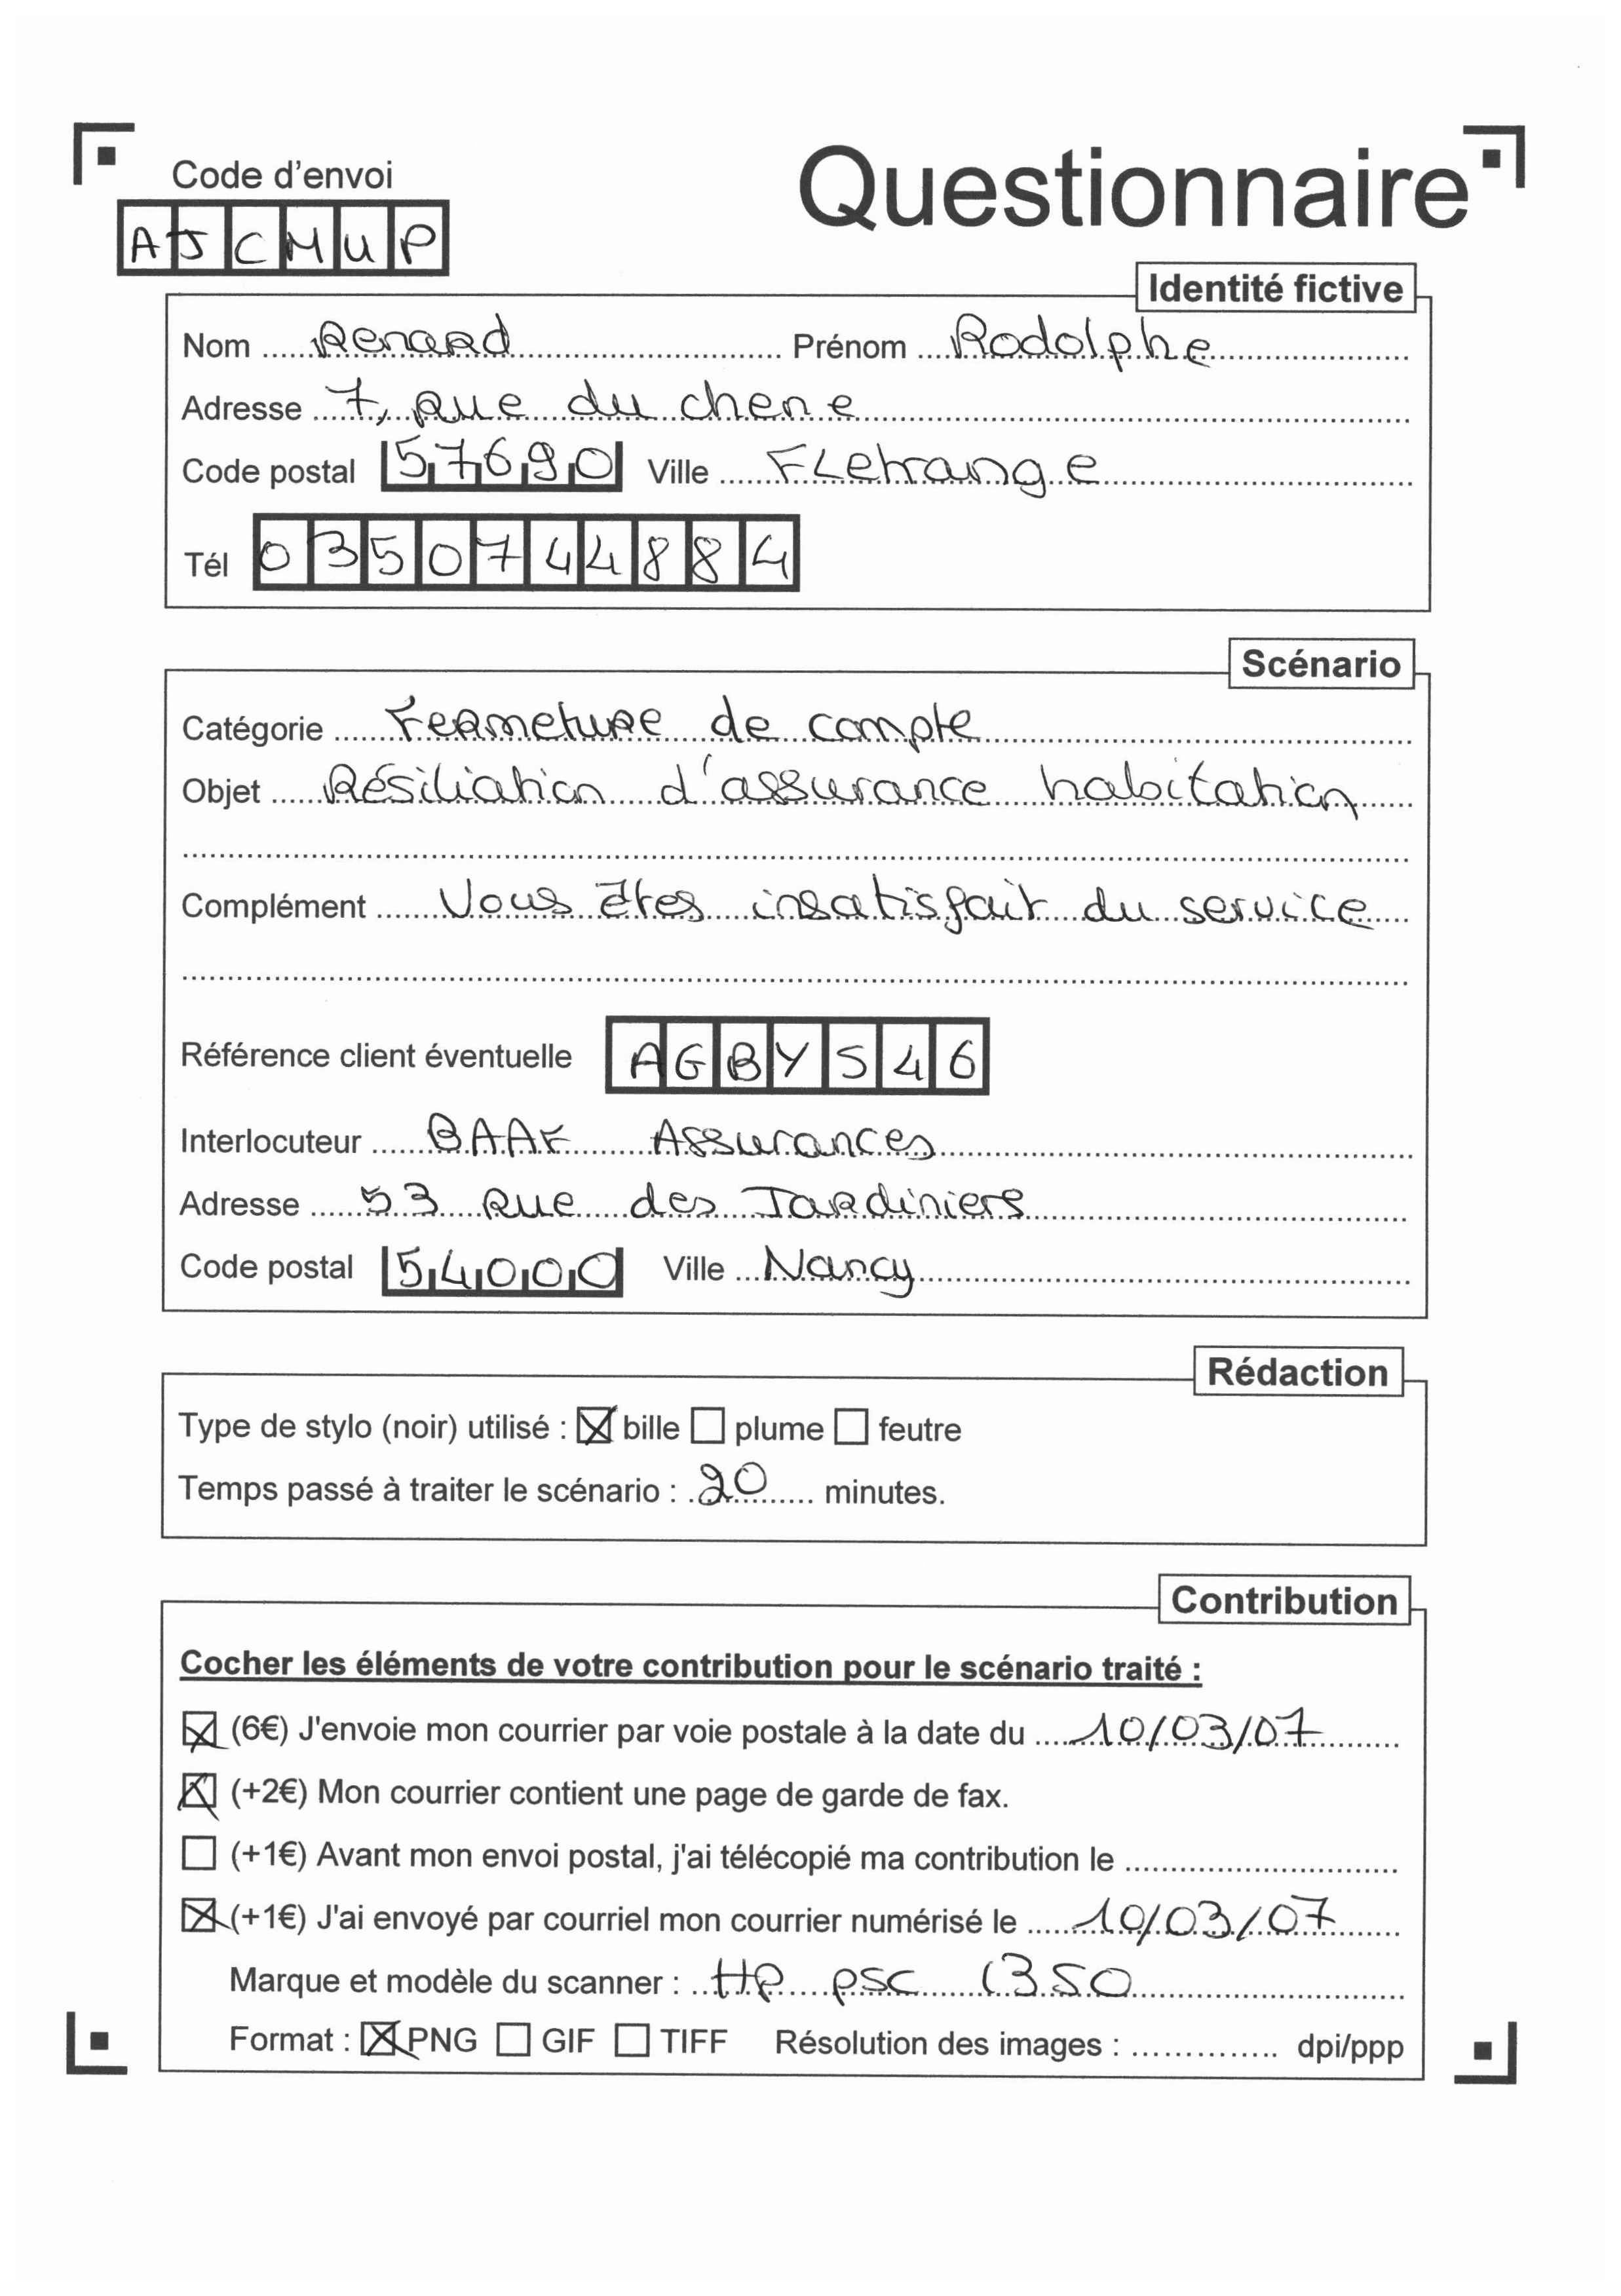 Code d'envoi
AJCMUP
Questionnaire
Identité fictive
Nom Renard Prénom Rodolphe
Adresse 7, rue du chene
Code postal 57690 Ville FLetrange
Tél 0350744884
Scénario
Catégorie Fermeture de compte
Objet Résiliation d'assurance habitation
Complément Vous êtes insatisfait du service
Référence client éventuelle AGBYS46
Interlocuteur BAAF Assurances
Adresse 53 rue des Jardiniers
Code postal 54000 Ville Nancy
Rédaction
Type de stylo (noir) utilisé : bille plume feutre
Temps passé à traiter le scénario : 20 minutes.
Contribution
Cocher les éléments de votre contribution pour le scénario traité :
(6€) J'envoie mon courrier par voie postale à la date du 10/03/07
(+2€) Mon courrier contient une page de garde de fax.
(+1€) Avant mon envoi postal, j'ai télécopié ma contribution le
(+1€) J'ai envoyé par courriel mon courrier numérisé le 10/03/07
Marque et modèle du scanner : HP psc 1350
Format : PNG GIF TIFF Résolution des images : dpi/ppp